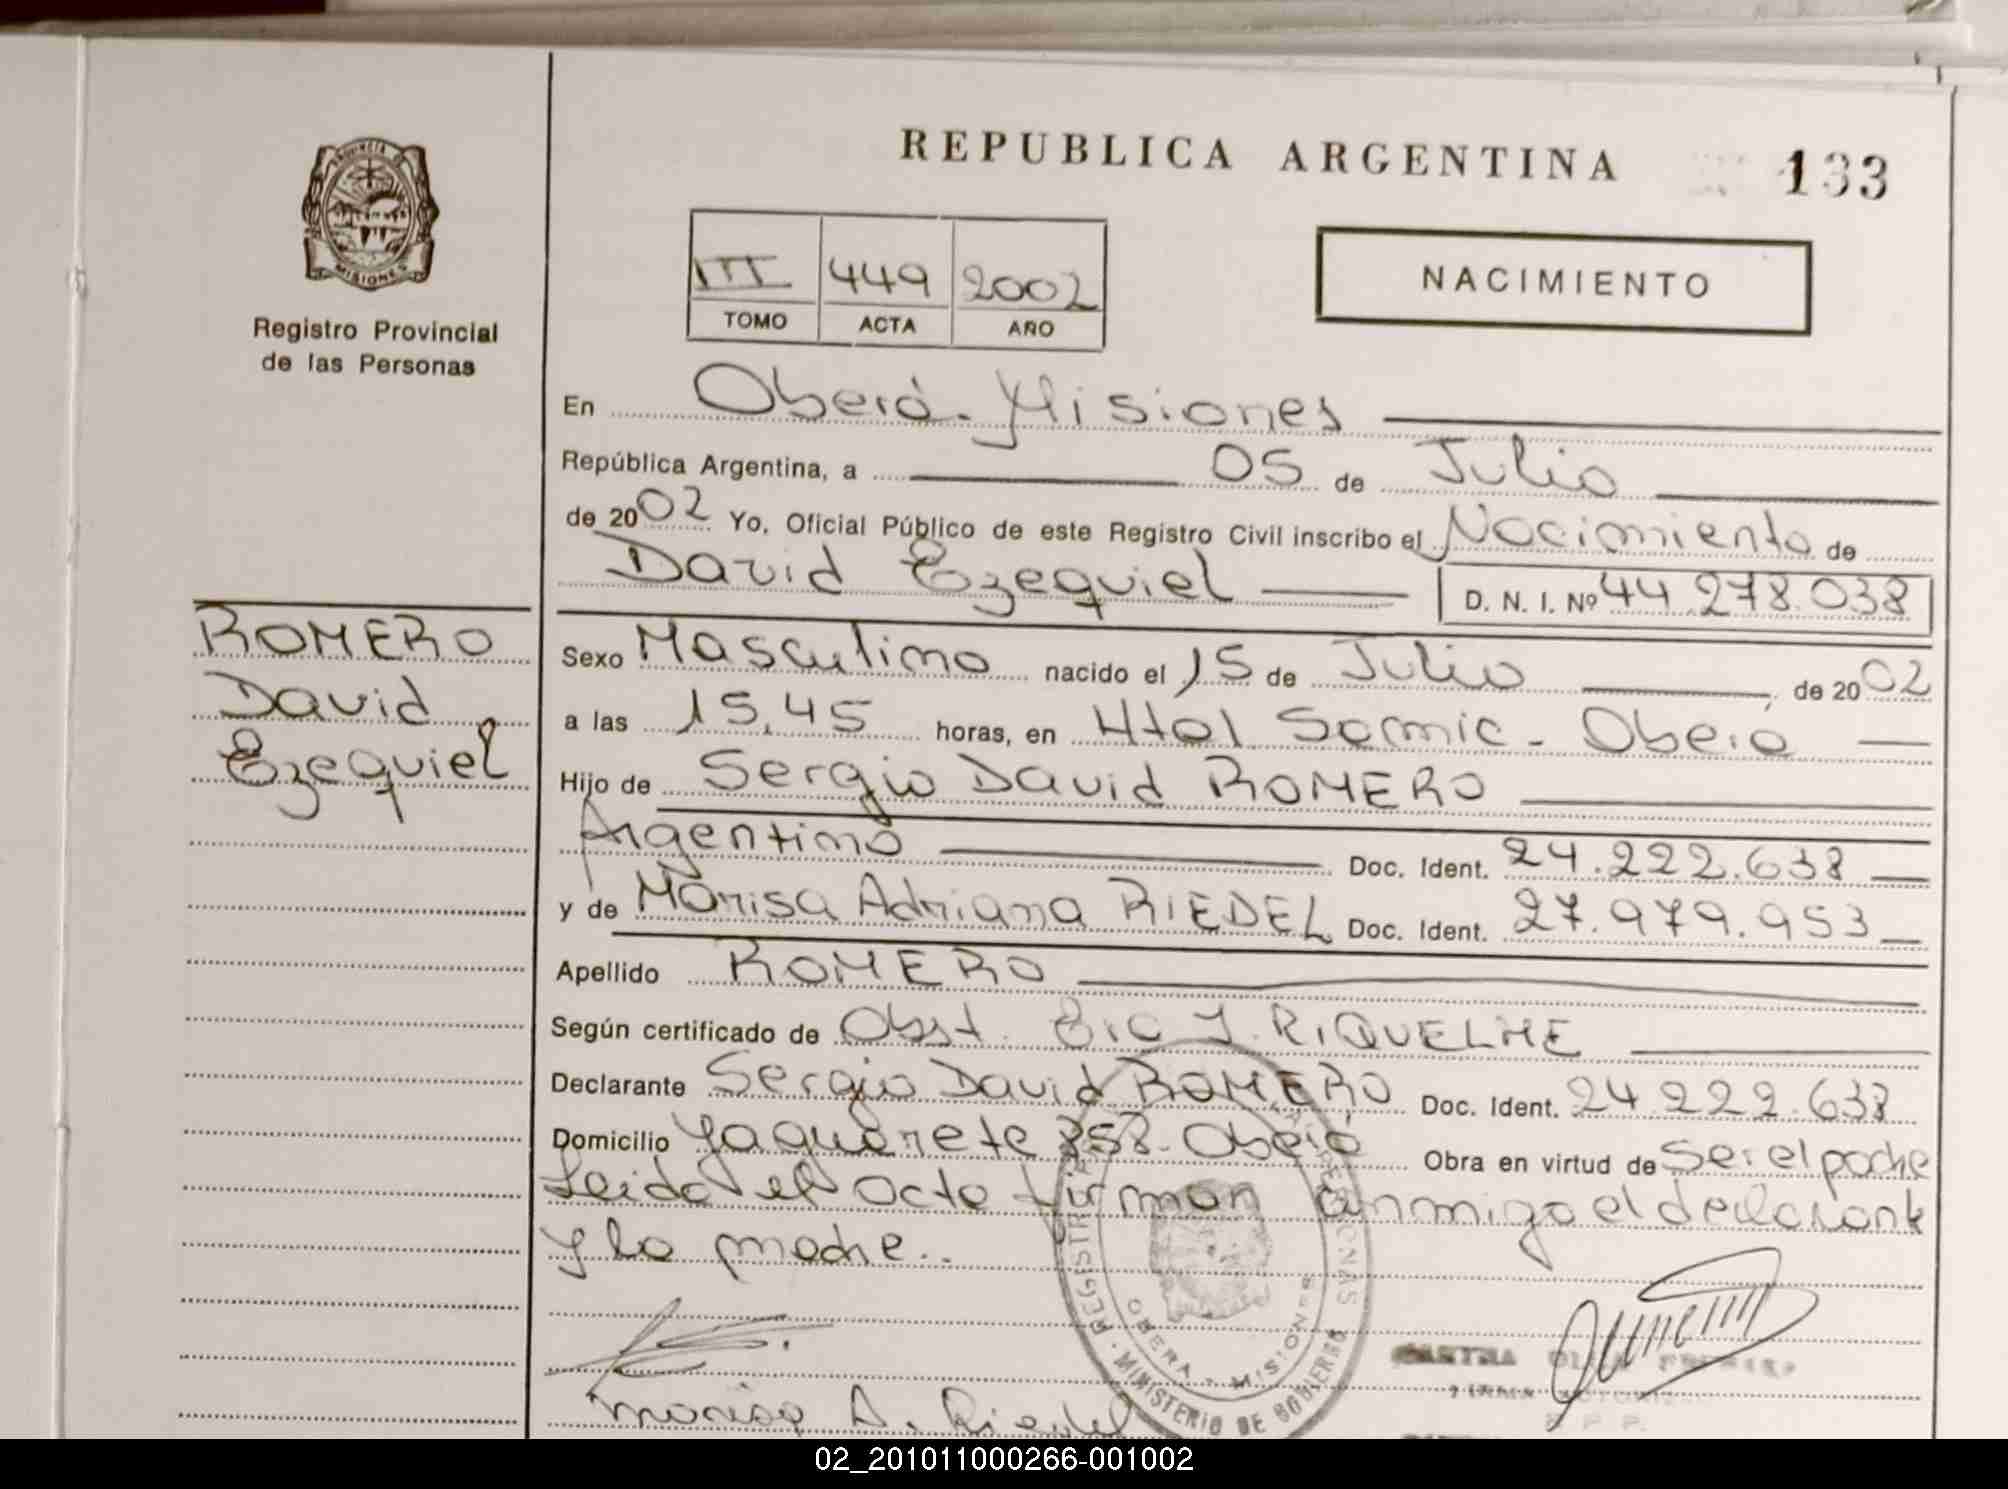 REPUBLICA ARGENTINA 133
PROVINCIA DE
MISIONES
Registro Provincial
de las Personas
III 449 2002
TOMO ACTA AÑO
NACIMIENTO
En Oberá - Misiones
República Argentina, a 05 de Julio
de 2002 Yo, Oficial Público de este Registro Civil inscribo el Nacimiento de
David Ezequiel D. N. I. Nº 44.278.038
ROMERO
David
Ezequiel
Sexo Masculino nacido el 15 de Julio, de 2002
a las 15,45 horas, en Htal Samic - Oberá
Hijo de Sergio David ROMERO
Argentino Doc. Ident. 24.222.638
y de Marisa Adriana RIEDEL Doc. Ident. 27.979.953
Apellido ROMERO
Según certificado de Obst. J. RIQUELME
Declarante Sergio David ROMERO Doc. Ident. 24.222.638
Domicilio Yaguarete 858 - Oberá Obra en virtud de Ser el padre
Leida el acta firman conmigo el declarante
y la madre..
OBERA - MISIONES
MINISTERIO DE GOBIERNO
Marisa A. Riedel
02_201011000266-001002